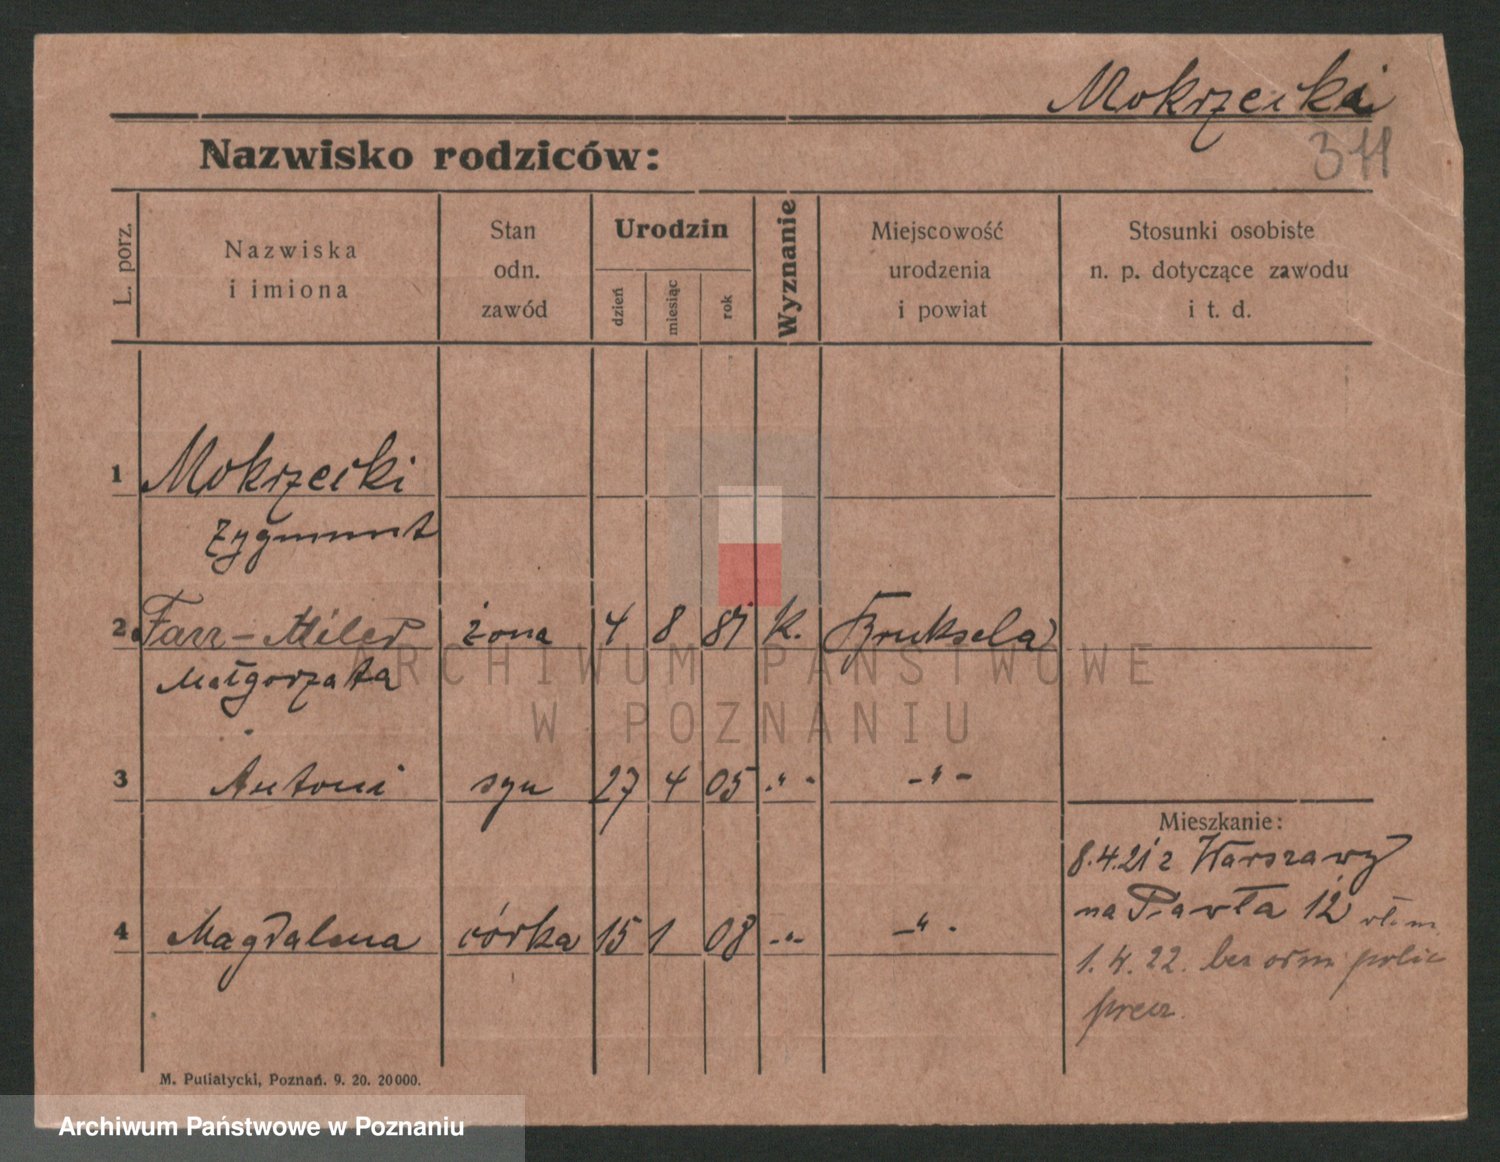 Mokrzecki
311
Nazwisko rodziców:
L. porz.
Nazwiska
i imiona
Stan
odn.
zawód
Urodzin
dzień
miesiąc
rok
Wyznanie
Miejscowość
urodzenia
i powiat
Stosunki osobiste
n. p. dotyczące zawodu
i t. d.
1 Mokrzecki
Zygmunt
2 Farr-Miler żona 4 8 87 k. Bruksela
Małgorzata
3 Antoni syn 27 4 05 -"- -"-
Mieszkanie:
8.4.21 z Warszawy
na Pawła 12
4 Magdalena córka 15 1 08 -"- -"-
1.4.22. bez odm polic
M. Putiatycki, Poznań. 9. 20. 20000.
ARCHIWUM PAŃSTWOWE
W POZNANIU
Archiwum Państwowe w Poznaniu